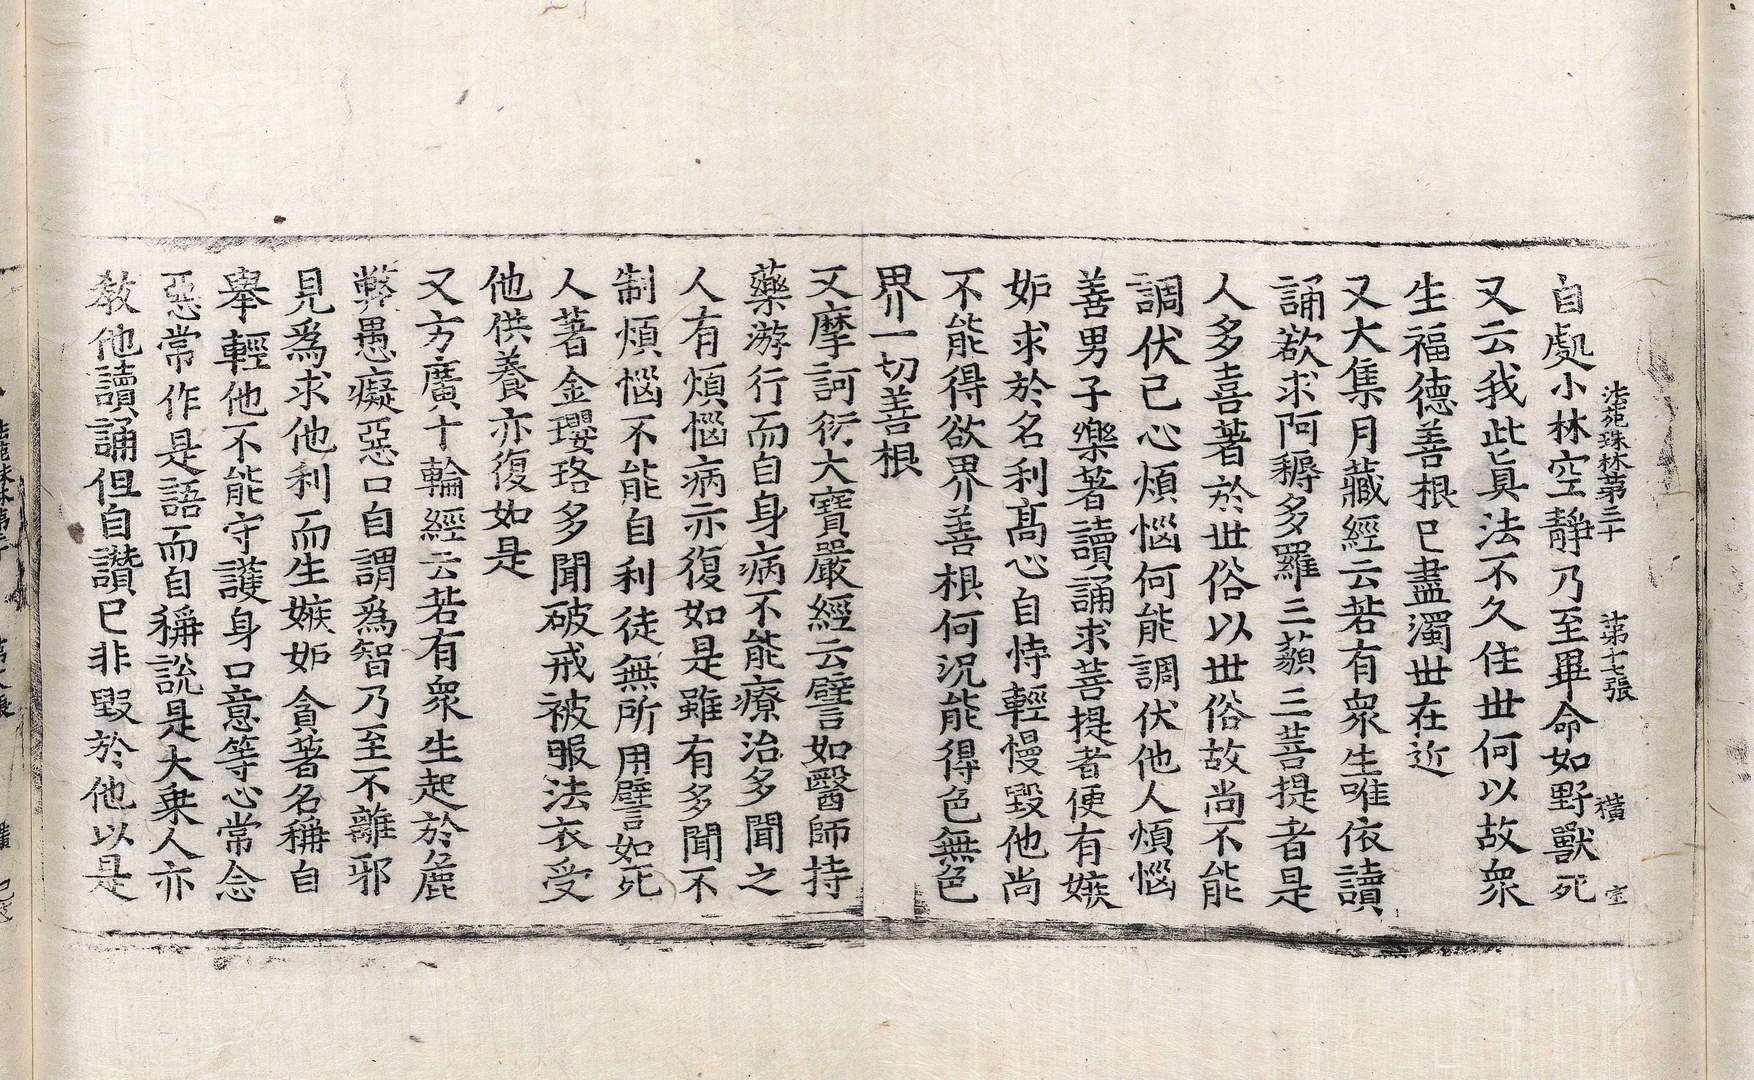 法苑珠林第三十　第十七張　橫
自處小林空靜乃至畢命如野獸死
又云我此眞法不久住世何以故衆
生福德善根已盡濁世在近
又大集月藏經云若有衆生唯依讀
誦欲求阿耨多羅三藐三菩提者是
人多喜著於世俗以世俗故尚不能
調伏已心煩惱何能調伏他人煩惱
善男子樂著讀誦求菩提者便有嫉
妬求於名利髙心自恃輕慢毀他尚
不能得欲界善根何況能得色無色
界一切善根
又摩訶衍大寶嚴經云譬如醫師持
藥游行而自身病不能療治多聞之
人有煩惱病亦復如是雖有多聞不
制煩惱不能自利徒無所用譬如死
人著金瓔珞多聞破戒被服法衣受
他供養亦復如是
又方廣十輪經云若有衆生起於麁
弊愚癡惡口自謂爲智乃至不離邪
見爲求他利而生嫉妬貪著名稱自
舉輕他不能守護身口意等心常念
惡常作是語而自稱說是大乗人亦
教他讀誦但自讚已非毀於他以是